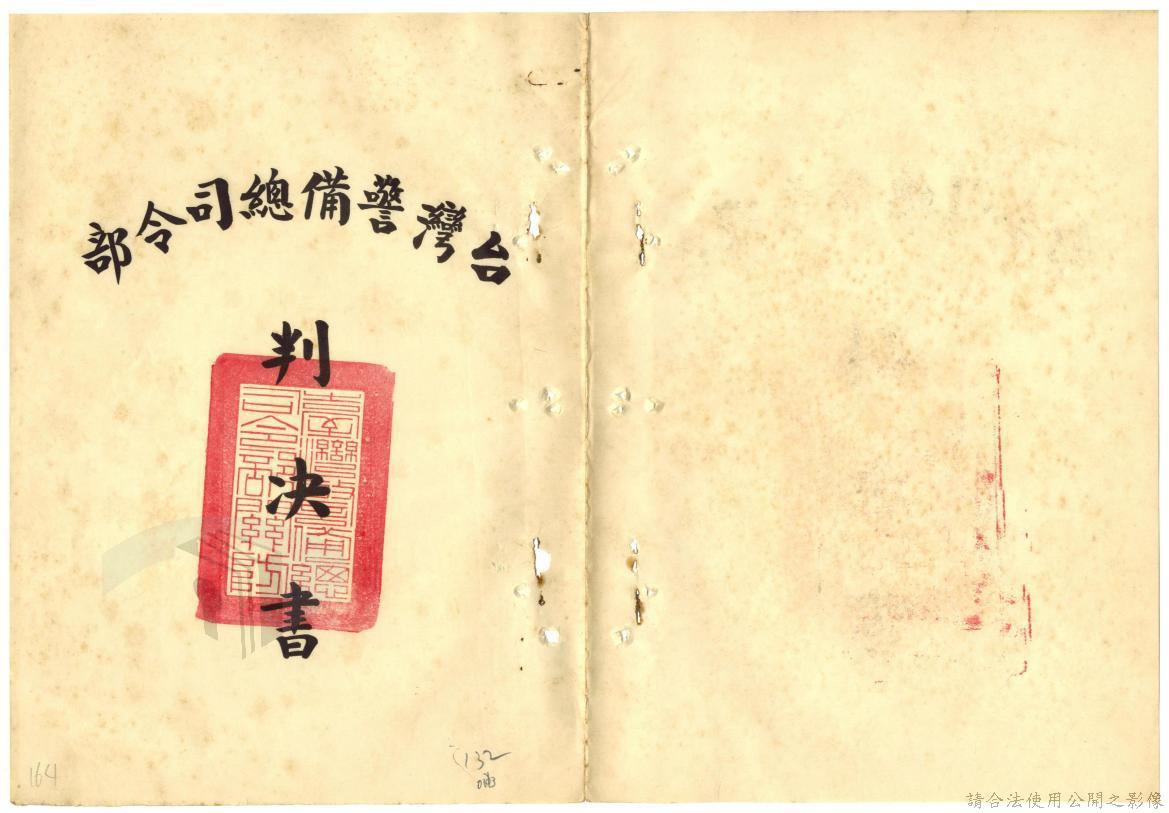 台灣警備總司令部
判決書
臺灣警備總
司令部關防
164
132
請合法使用公開之影像